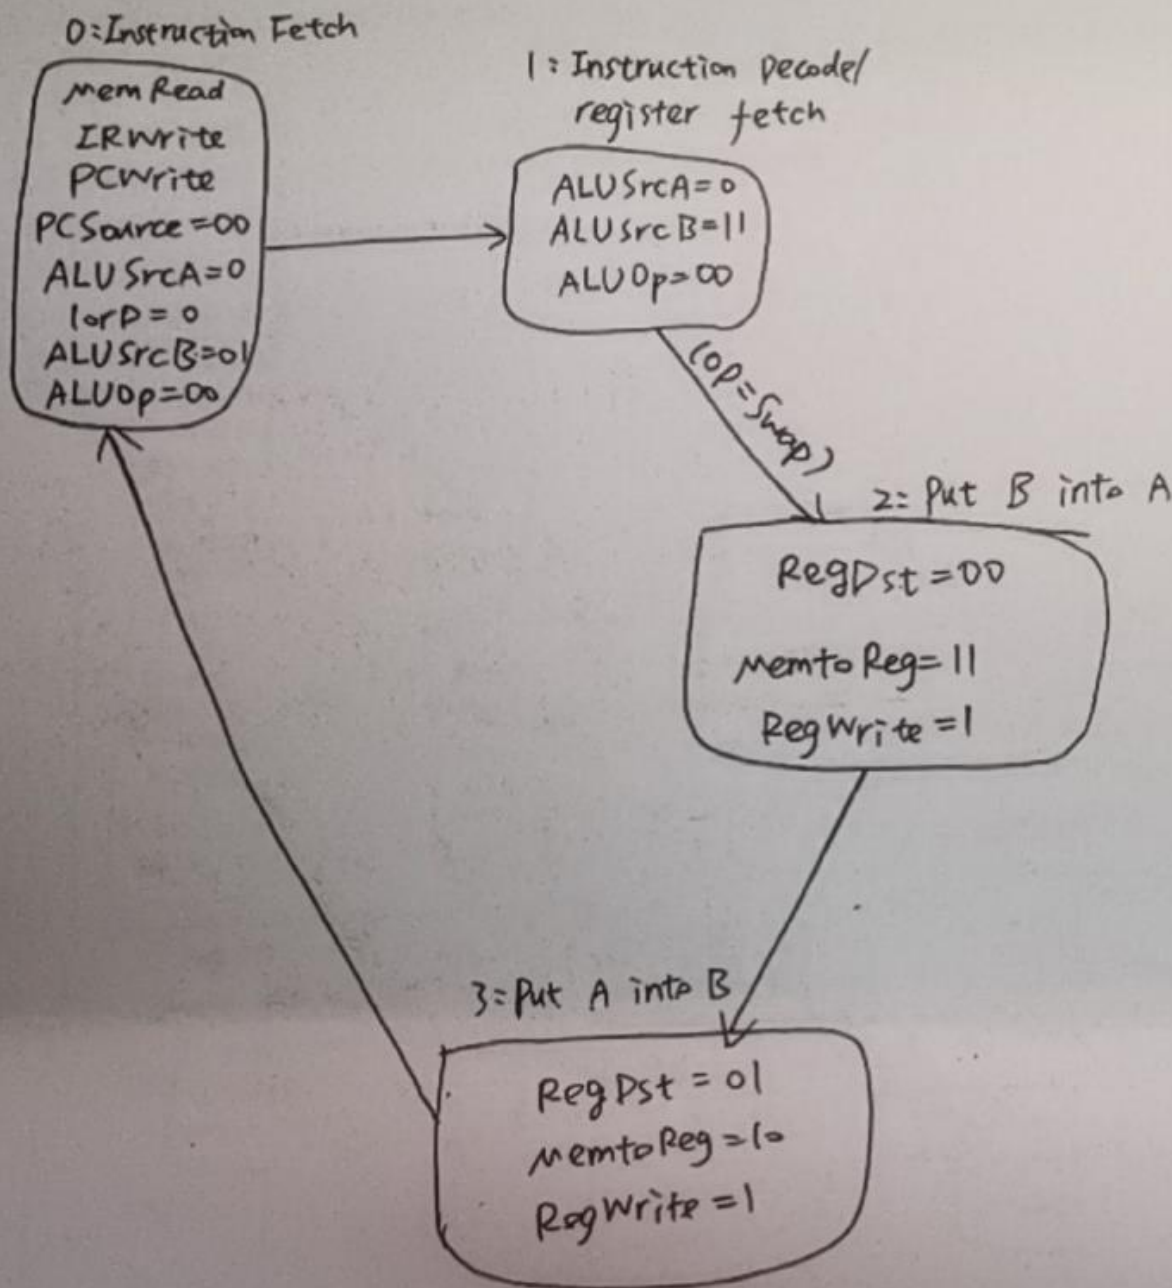 0:Instruction Fetch
MemRead
IRWrite
PCWrite
PCSource=00
ALUSrcA=0
IorD=0
ALUSrcB=01
ALUOp=00
1: Instruction Decode/
register fetch
ALUSrcA=0
ALUSrcB=11
ALUOp=00
(Op=Swap)
2: Put B into A
RegDst=00
MemtoReg=11
RegWrite=1
3: Put A into B
RegDst=01
MemtoReg=10
RegWrite=1